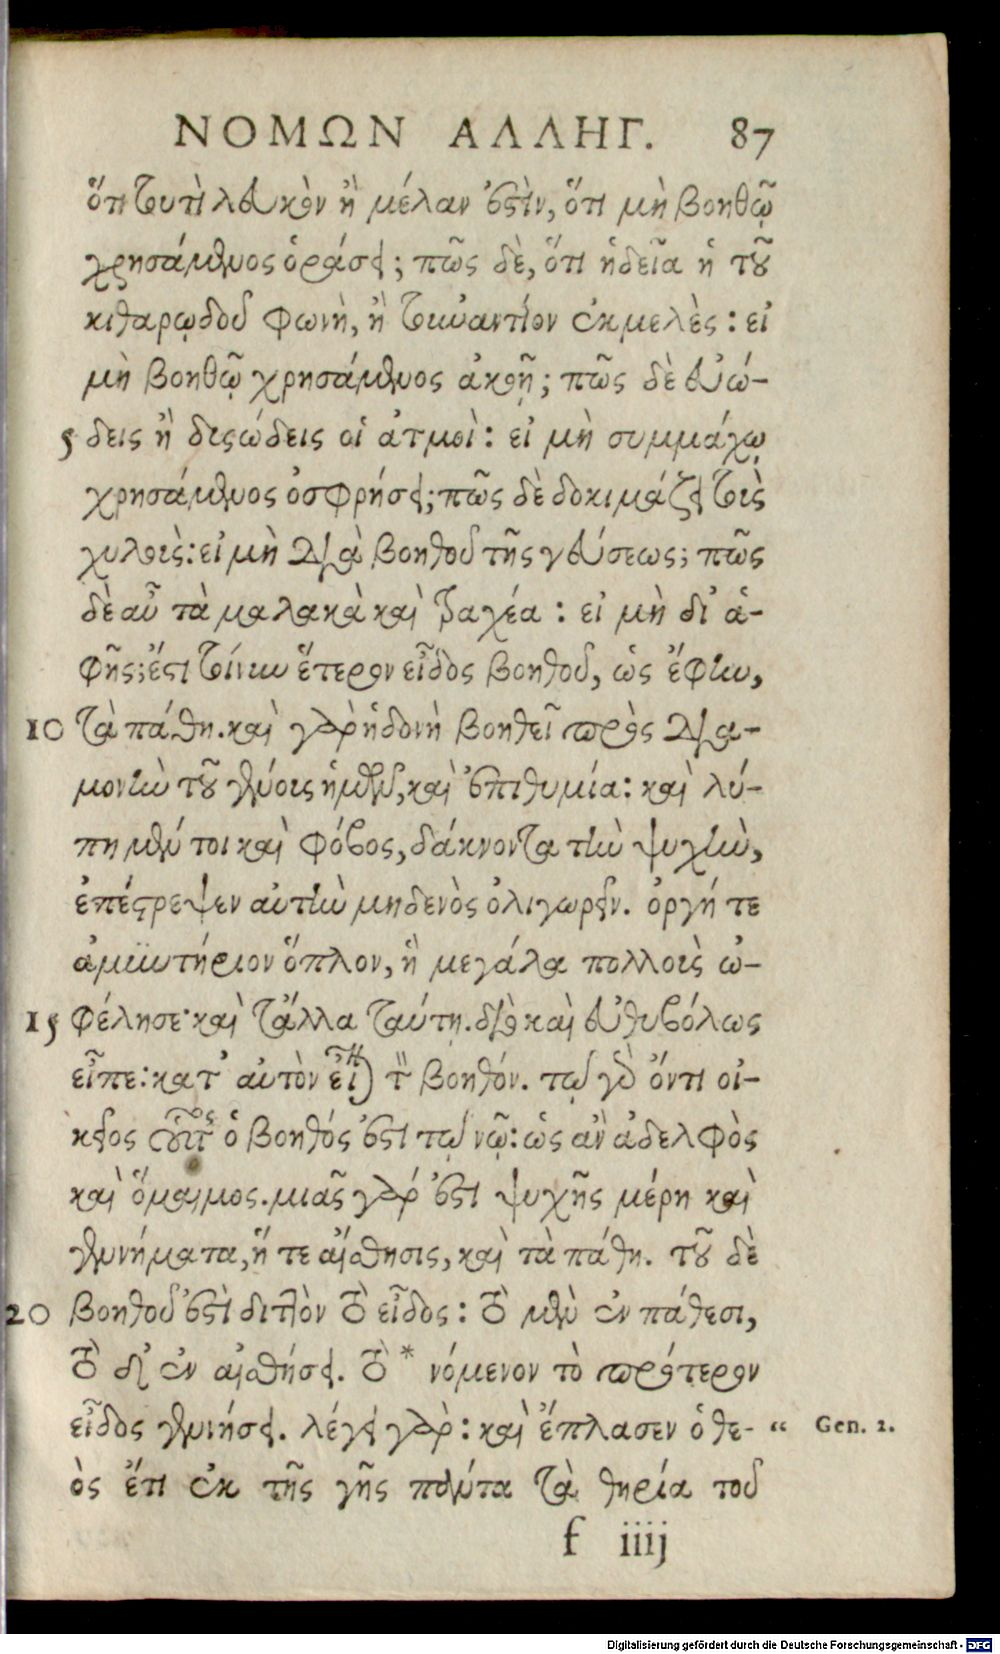 ΝΟΜΩΝ ΑΛΛΗΓ. 87
ὅτι τουτὶ λευκὸν ἢ μέλαν ἐστὶν, ὅτι μὴ βοηθῷ
χρησάμενος ὁράσει; πῶς δὲ, ὅτι ἡδεῖα ἡ τοῦ
κιθαρῳδοῦ φωνὴ, ἢ τοὐναντίον ἐκμελὲς: εἰ
μὴ βοηθῷ χρησάμενος ἀκοῇ; πῶς δὲ εὐώ-
5 δεις ἢ δυσώδεις οἱ ἀτμοὶ: εἰ μὴ συμμάχῳ
χρησάμενος ὀσφρήσει; πῶς δὲ δοκιμάζει τοὺς
χυλοὺς: εἰ μὴ διὰ βοηθοῦ τῆς γεύσεως; πῶς
δὲ αὖ τὰ μαλακὰ καὶ τραχέα: εἰ μὴ δι᾽ ἁ-
φῆς; ἔστι τοίνυν ἕτερον εἶδος βοηθοῦ, ὡς ἔφην,
10 τὰ πάθη. καὶ γὰρ ἡδονὴ βοηθεῖ πρὸς δια-
μονὴν τοῦ γένους ἡμῶν, καὶ ἐπιθυμία: καὶ λύ-
πη μέν τοι καὶ φόβος, δάκνοντα τὴν ψυχὴν,
ἐπέστρεψεν αὐτὴν μηδενὸς ὀλιγωρεῖν. ὀργή τε
ἀμυντήριον ὅπλον, ἣ μεγάλα πολλοὺς ὠ-
15 φέλησε· καὶ τἄλλα ταύτῃ. διὸ καὶ εὐθυβόλως
εἶπε: κατ᾽ αὐτὸν εἶναι τὸν βοηθόν. τῷ γὰρ ὄντι οἰ-
κεῖος οὗτος ὁ βοηθός ἐστι τῷ νῷ: ὡς ἂν ἀδελφὸς
καὶ ὅμαιμος. μιᾶς γάρ ἐστι ψυχῆς μέρη καὶ
γεννήματα, ἥ τε αἴσθησις, καὶ τὰ πάθη. τοῦ δὲ
20 βοηθοῦ ἐστὶ διττὸν τὸ εἶδος: τὸ μὲν ἐν πάθεσι,
τὸ δ᾽ ἐν αἰσθήσει. τὸ * νόμενον τὸ πρότερον
εἶδος γεννήσει. λέγει γὰρ: καὶ ἔπλασεν ὁ θε- “ Gen. 2.
ὸς ἔτι ἐκ τῆς γῆς πάντα τὰ θηρία τοῦ
f iiij
Digitalisierung gefördert durch die Deutsche Forschungsgemeinschaft - DFG